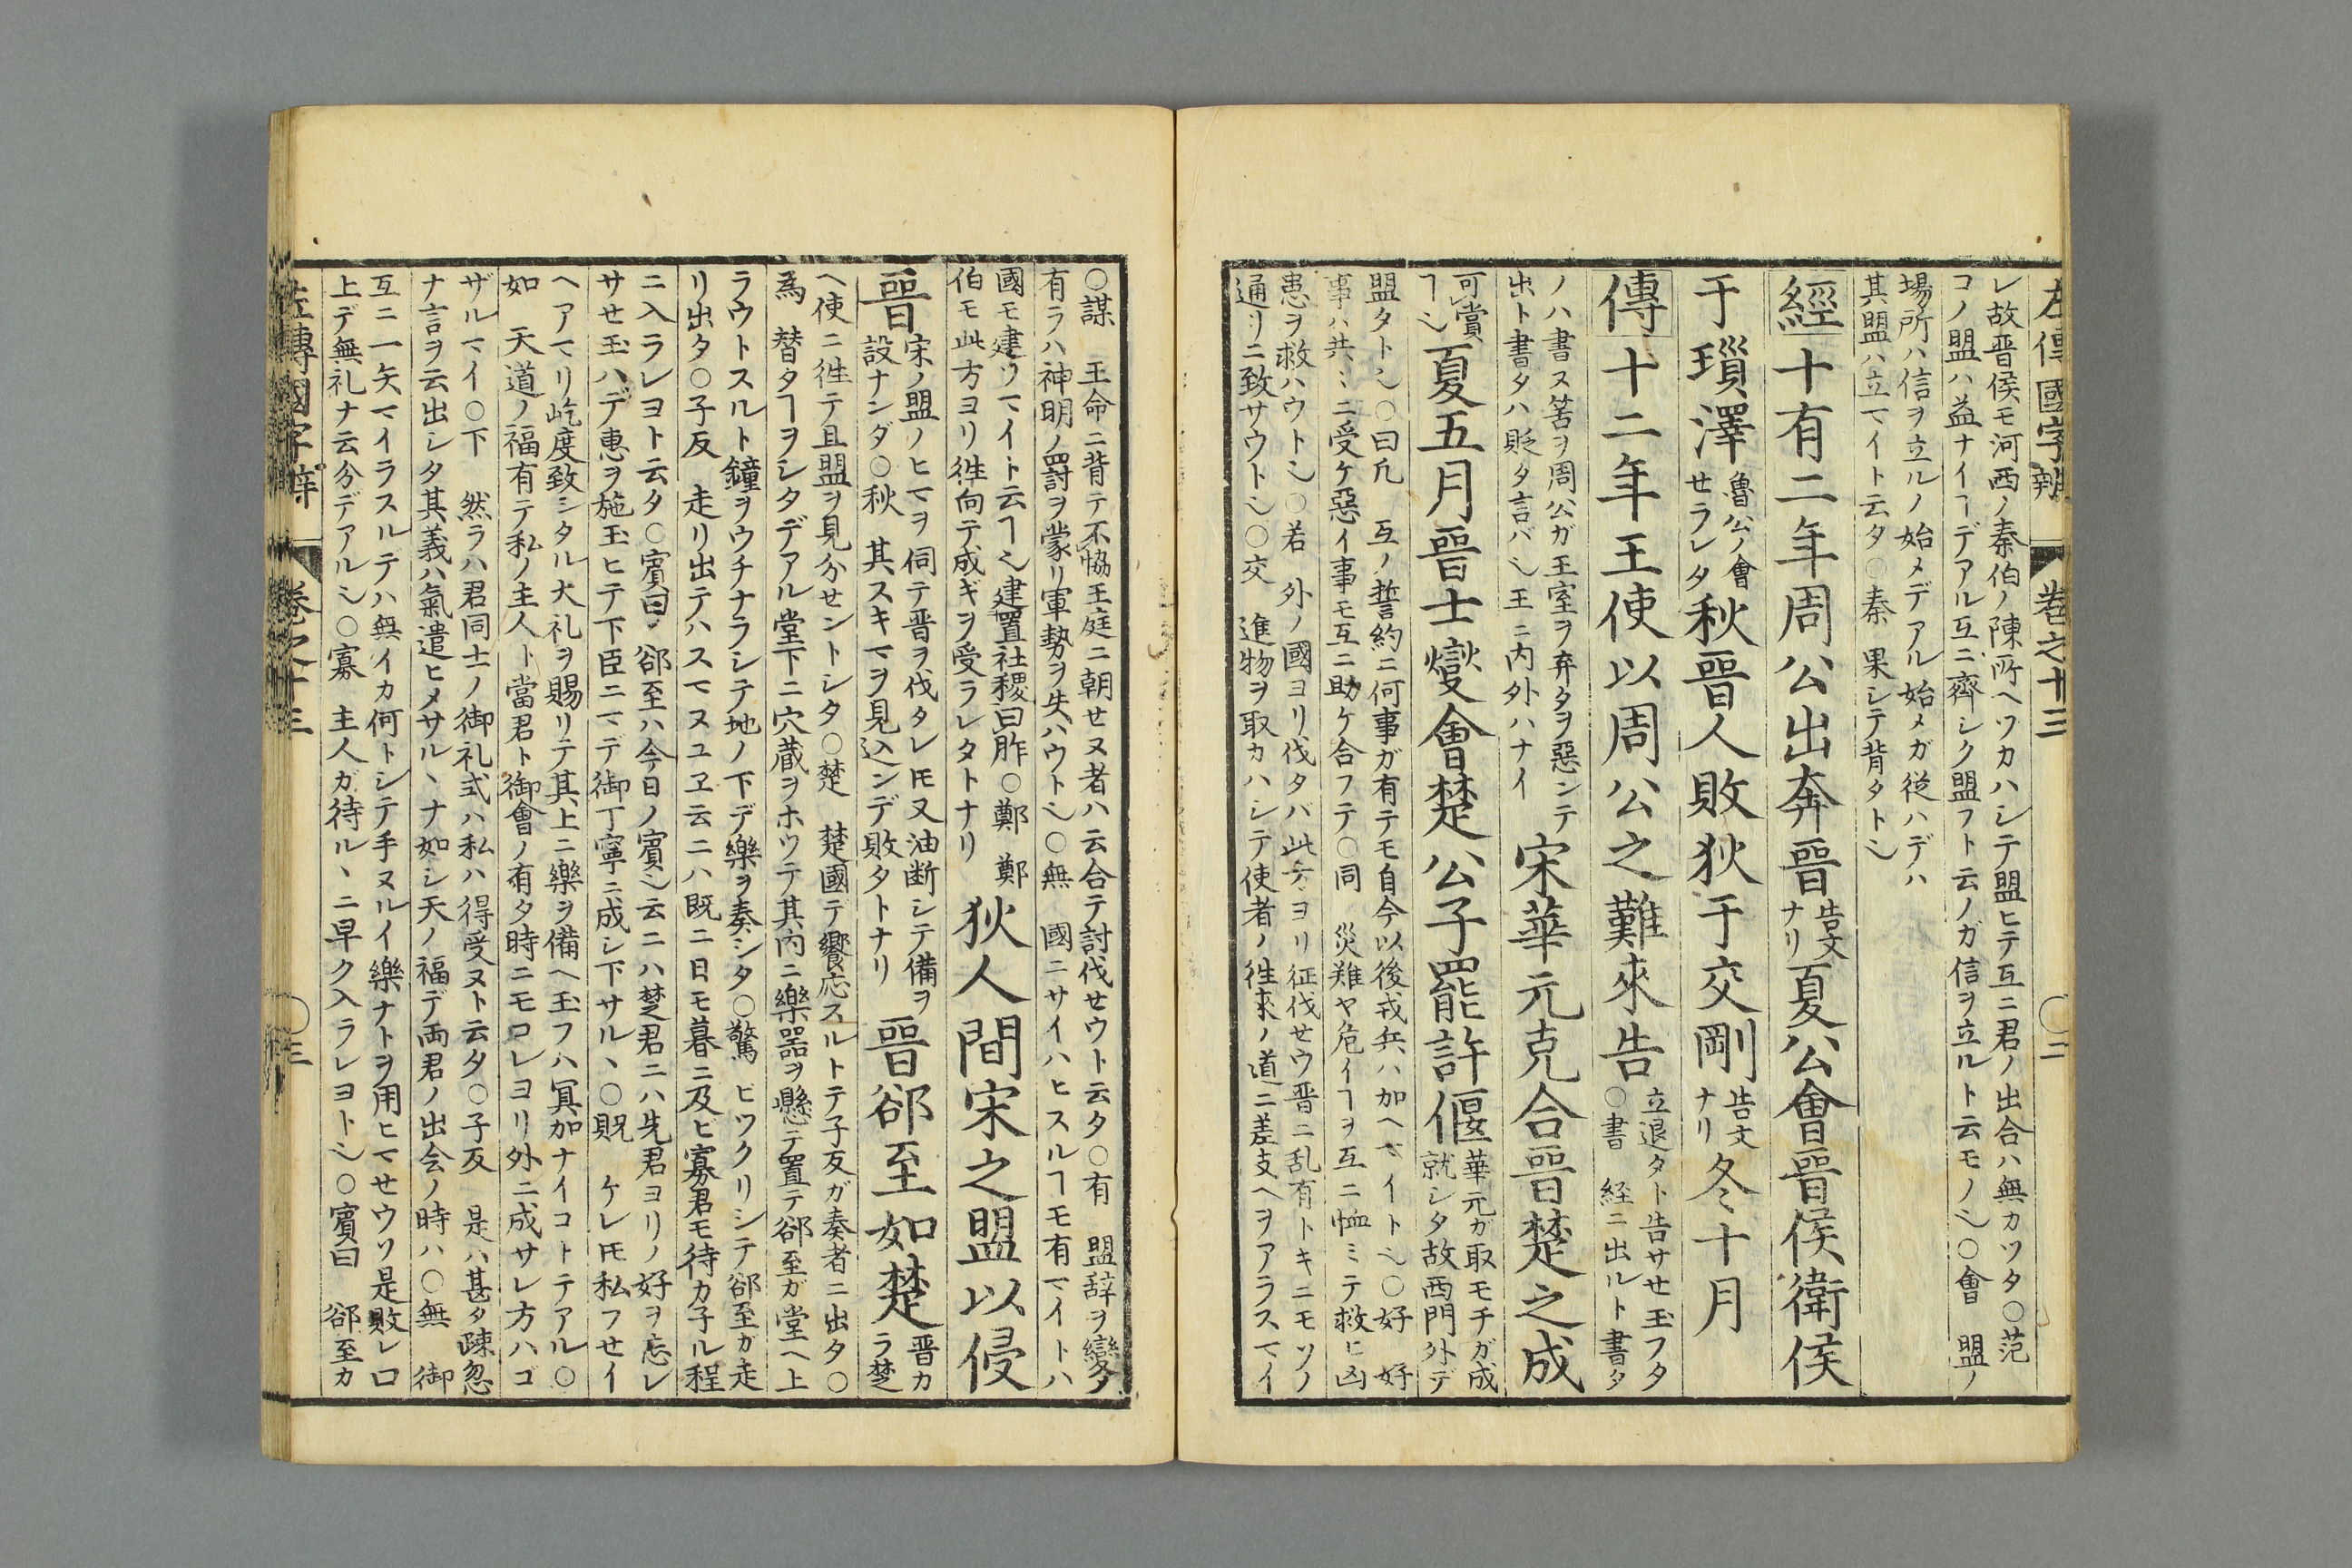 左傳國字辨 卷之十三 〇二
レ故晋侯モ河西ノ秦伯ノ陳所ヘワカハシテ盟ヒテ互ニ君ノ出合ハ無カツタ〇范
コノ盟ハ益ナイヿデアル互ニ齊シク盟フト云ノガ信ヲ立ルト云モノ〇會 盟ノ
場所ハ信ヲ立ルノ始メデアル始メガ從ハデハ
其盟ハ立マイト云タ〇秦 果シテ背タト
經十有二年周公出奔晉告文ナリ夏公會晉侯衛侯
于瑣澤魯公ノ會せラレタ秋晉人敗狄于交剛告文ナリ冬十月
傳十二年王使以周公之難來告立退タト告サせ玉フタ〇書 経ニ出ルト書タ
ノハ書ヌ筈ヲ周公ガ王室ヲ弃タヲ惡ンテ
出ト書タハ貶タ言バ王ニ内外ハナイ
宋華元克合晉楚之成
可賞
夏五月晉士燮會楚公子罷許偃華元ガ取モチガ成就シタ故西門外デ
盟タト〇曰凡 互ノ誓約ニ何事ガ有テモ自今以後戎兵ハ加ヘマイト〇好 好
事ハ共ミニ受ケ惡イ事モ互ニ助ケ合フテ〇同 災難ヤ危イヿヲ互ニ恤ミテ救ヒ凶
患ヲ救ハウト〇若 外ノ國ヨリ伐タバ此方ヨリ征伐せウ晋ニ乱有トキニモソノ
通リニ致サウト〇交 進物ヲ取カハシテ使者ノ徃來ノ道ニ差支ヘヲアラスマイ
〇謀 王命ニ背テ不協王庭ニ朝せヌ者ハ云合テ討伐せウト云タ〇有 盟辞ヲ變ノ
有ラハ神明ノ罸ヲ蒙リ軍勢ヲ失ハウト〇無 國ニサイハヒスルヿモ有マイトハ
國モ建ツマイト云ヿ建置社稷曰胙〇鄭 鄭
伯モ此方ヨリ徃向テ成ギヲ受ラレタトナリ
狄人間宋之盟以侵
晉宋ノ盟ノヒマヲ伺テ晋ヲ伐タレトモ又油断シテ備ヲ設ナンダ〇秋 其スキマヲ見込ンデ敗タトナリ晉郤至如楚晋カラ楚
ヘ使ニ徃テ且盟ヲ見分せントシタ〇楚 楚國テ饗応スルトテ子反ガ奏者ニ出タ〇
爲 替タヿヲシタデアル堂下ニ穴蔵ヲホツテ其内ニ樂器ヲ懸テ置テ郤至ガ堂ヘ上
ラウトスルト鐘ヲウチナラシテ地ノ下デ樂ヲ奏シタ〇驚 ビツクリシテ郤至ガ走
リ出タ〇子反 走リ出テハスマヌユヱ云ニハ既ニ日モ暮ニ及ビ寡君モ待カ子ル程
ニ入ラレヨト云タ〇賓曰 郤至ハ今日ノ賓云ニハ楚君ニハ先君ヨリノ好ヲ忘レ
サせ玉ハデ惠ヲ施玉ヒテ下臣ニマデ御丁寧ニ成シ下サル丶〇貺 ケレトモ私フせイ
ヘアマリ屹度致シタル大礼ヲ賜リテ其上ニ樂ヲ備ヘ玉フハ冥加ナイコトテアル〇
如 天道ノ福有テ私ノ主人ト當君ト御會ノ有タ時ニモコレヨリ外ニ成サレ方ハゴ
ザルマイ〇下 然ラハ君同士ノ御礼式ハ私ハ得受ヌト云タ〇子反 是ハ甚タ踈忽
ナ言ヲ云出シタ其義ハ氣遣ヒメサル丶ナ如シ天ノ福デ両君ノ出会ノ時ハ〇無 御
互ニ一矢マイラスルデハ無イカ何トシテ手ヌルイ樂ナトヲ用ヒマせウソ是敗レ口
上デ無礼ナ云分デアル〇寡 主人ガ待ル丶ニ早ク入ラレヨト〇賓曰 郤至カ
左傳國字辨 卷之十三 〇三